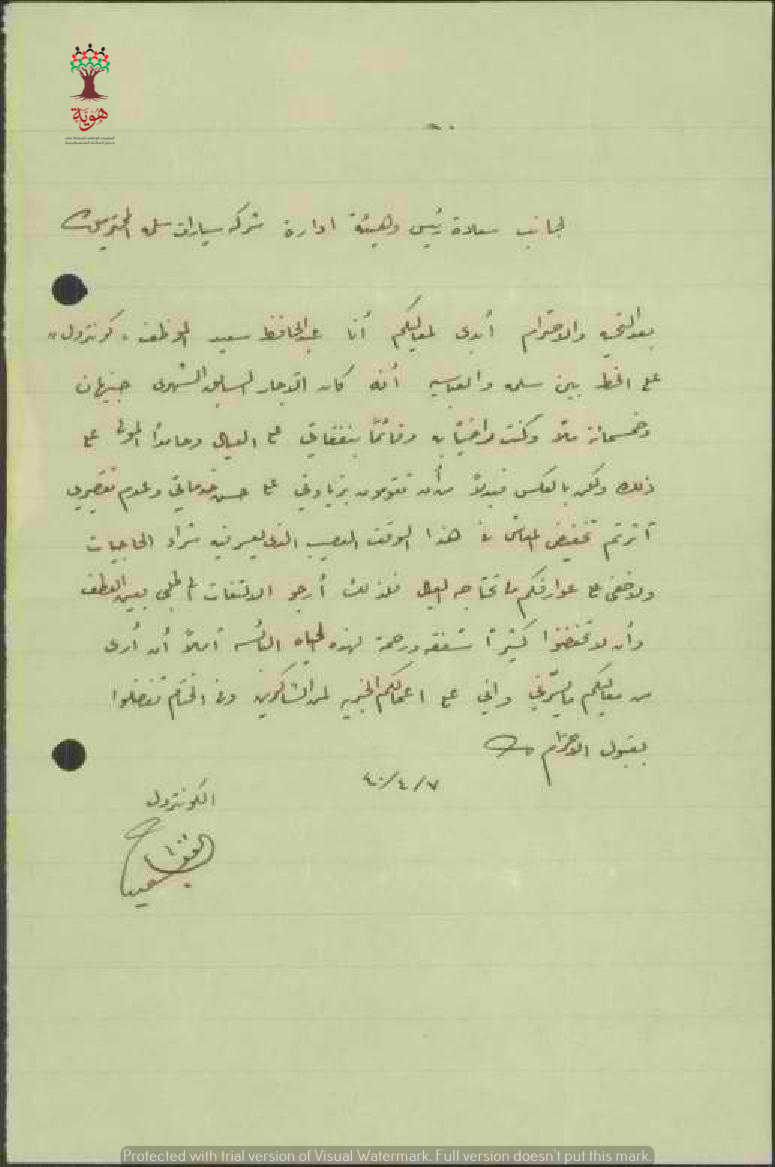 هوية
لجانب سعادة رئيس وهيئة ادارة شركة سيارات سلمه المحترمين
بعد التحيه والاحترام أبدى لمعاليكم أنا عبد الحافظ سعيد الموظف "كونترول"
على الخط بين سلمه والعباسيه أنه كان السابق الشهرى جنيهان
وخمسمائة ملاً وكنت راضياً به وقائماً بنفقاتي على العيال وحامداً المولى على
ذلك ولكن بالعكس فبدلاً من أن تقومون بزيادتي على حسن خدماتي وعدم تقصيري
آثرتم تخفيض المعاش في هذا الوقت العصيب الذى يعسر فيه شراء الحاجيات
ولا يخفى على عوارفكم ما تحتاجه العيال فلذلك أرجو الالتفات الى طلبي بعين العطف
وأن لا تخفضوا كثيراً شفقه ورحمة لهذه الحياه البائسه آملاً أن أرى
من معاليكم ما يسرّني واني على اعمالكم الخيريه لمن الشاكرين وفي الختام تفضلوا
بقبول الاحترام
٤٠/٤/٧
الكونترول
سعيد
Protected with trial version of Visual Watermark. Full version doesn't put this mark.